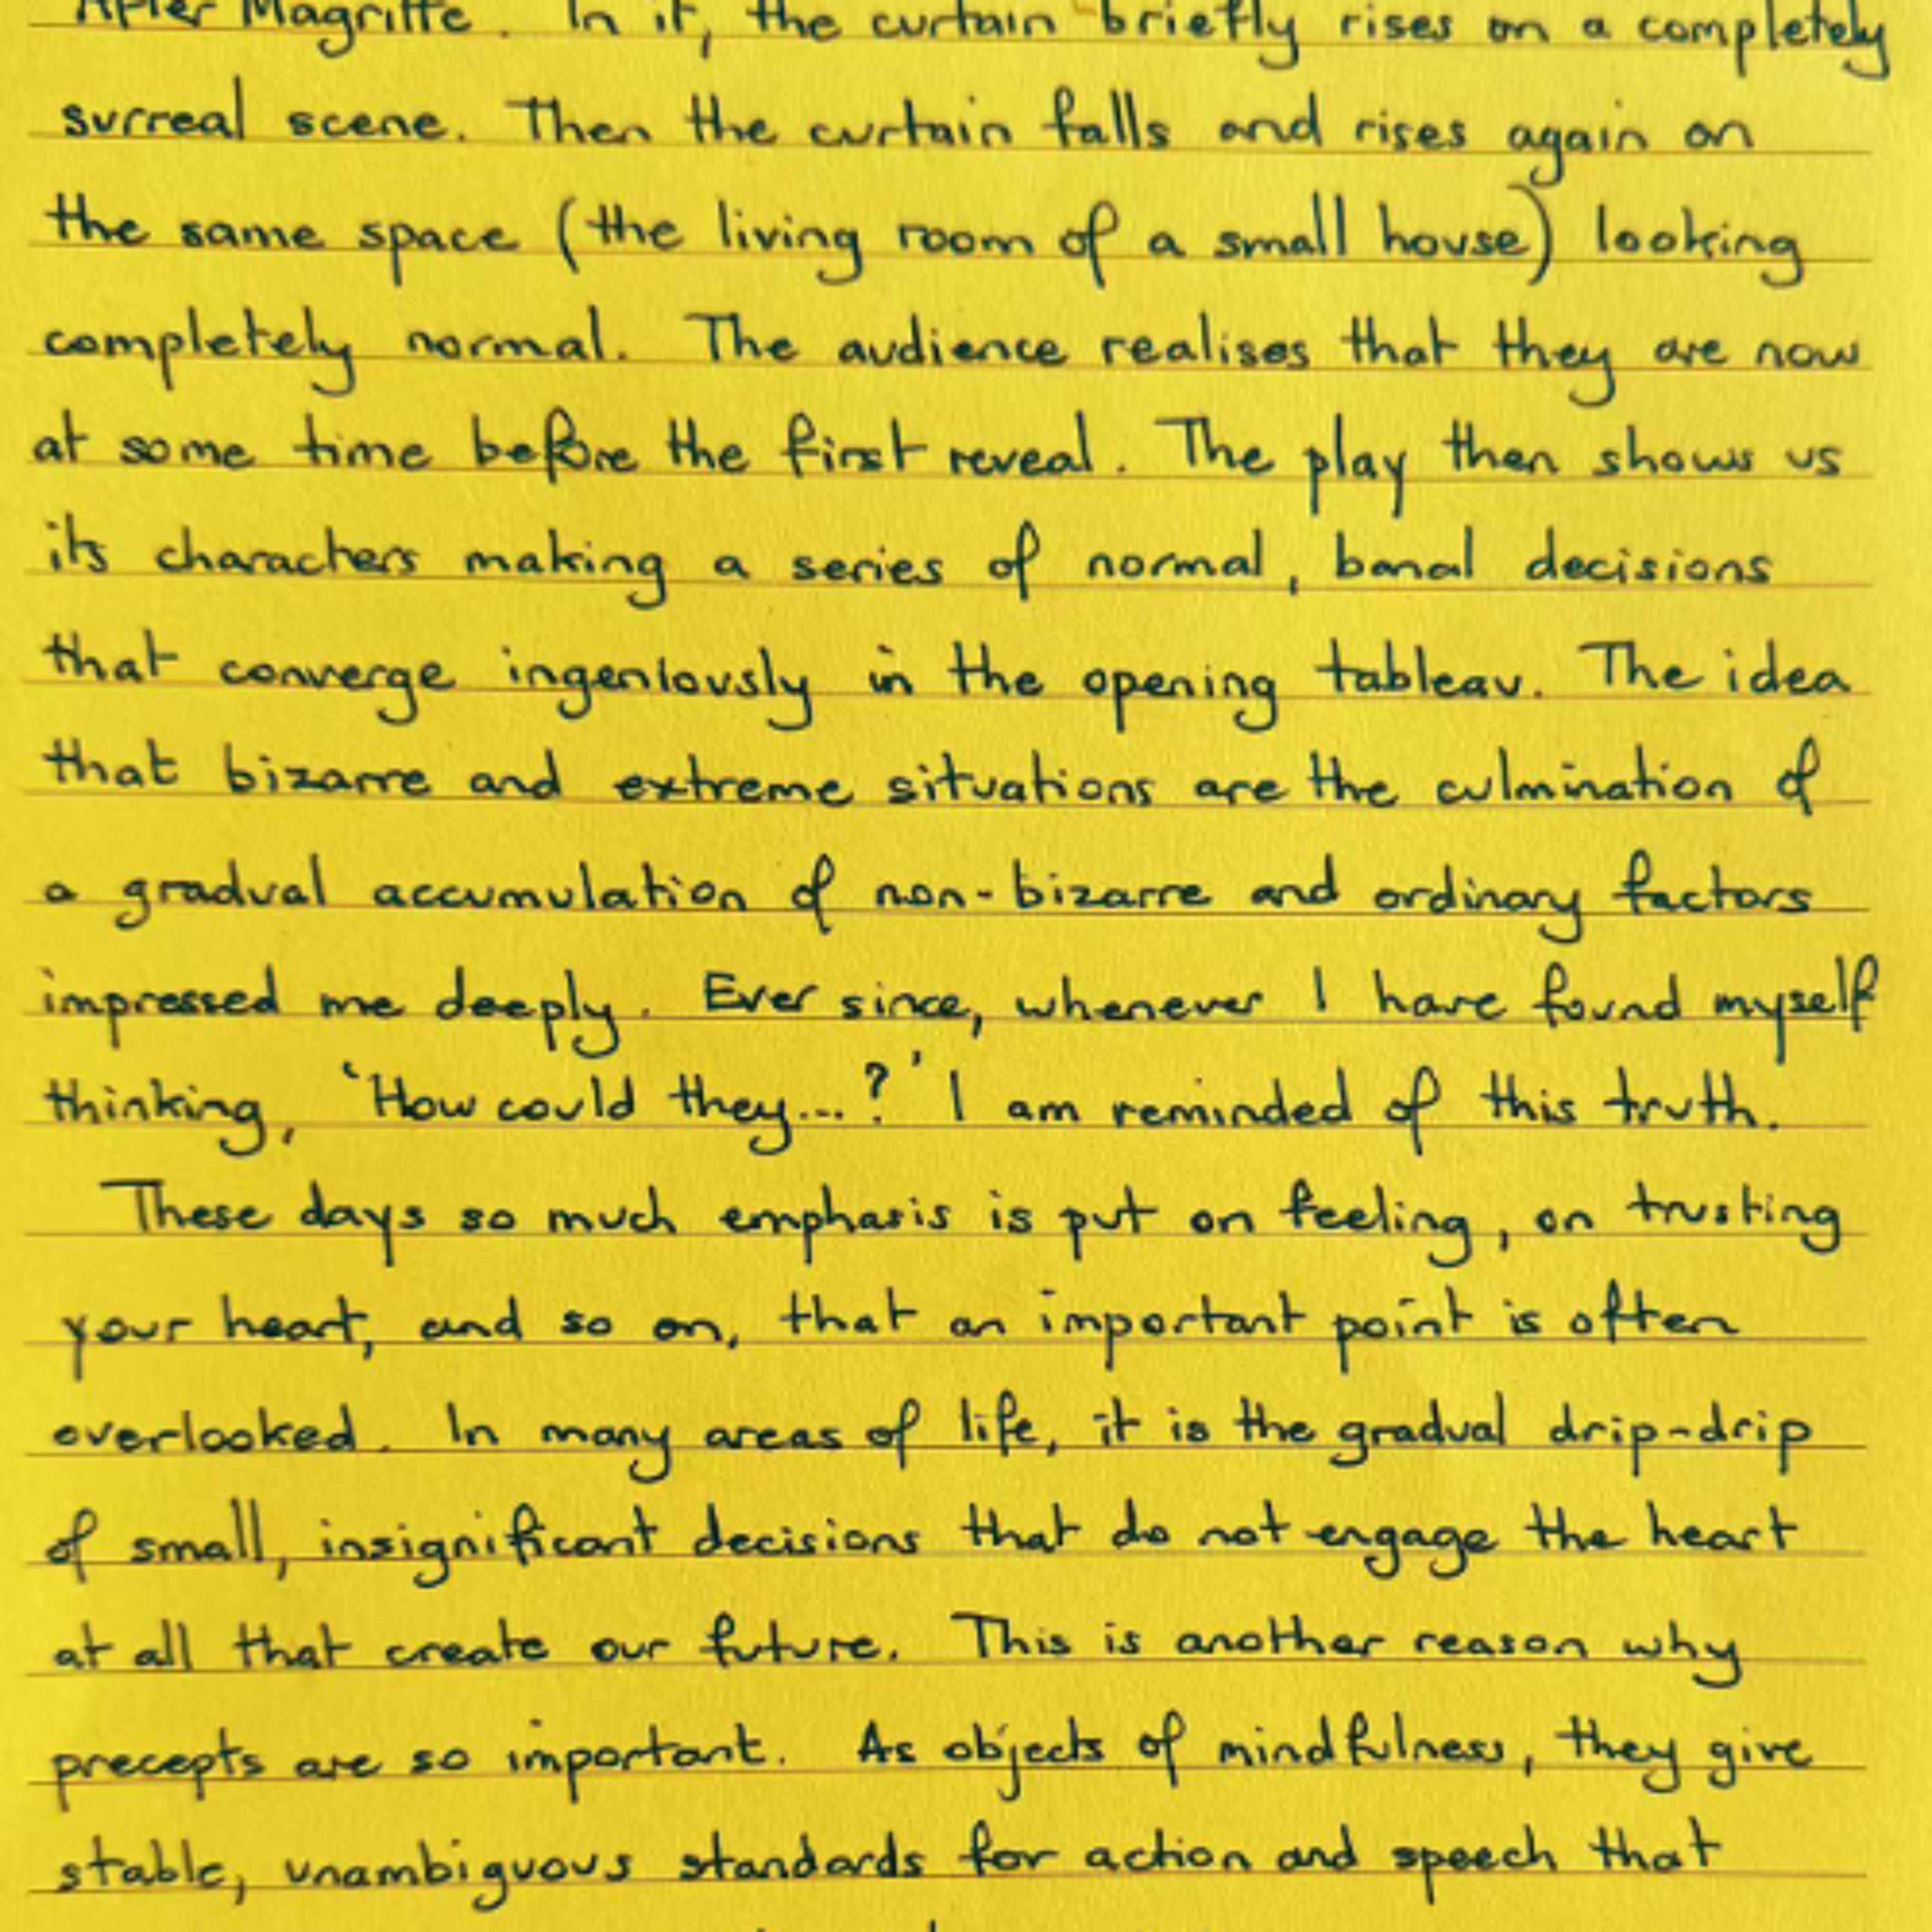 After Magritte. In it, the curtain briefly rises on a completely
surreal scene. Then the curtain falls and rises again on
the same space (the living room of a small house) looking
completely normal. The audience realises that they are now
at some time before the first reveal. The play then shows us
its characters making a series of normal, banal decisions
that converge ingeniously in the opening tableau. The idea
that bizarre and extreme situations are the culmination of
a gradual accumulation of non-bizarre and ordinary factors
impressed me deeply. Ever since, whenever I have found myself
thinking, ‘How could they...?’ I am reminded of this truth.
These days so much emphasis is put on feeling, on trusting
your heart, and so on, that an important point is often
overlooked. In many areas of life, it is the gradual drip-drip
of small, insignificant decisions that do not engage the heart
at all that create our future. This is another reason why
precepts are so important. As objects of mindfulness, they give
stable, unambiguous standards for action and speech that